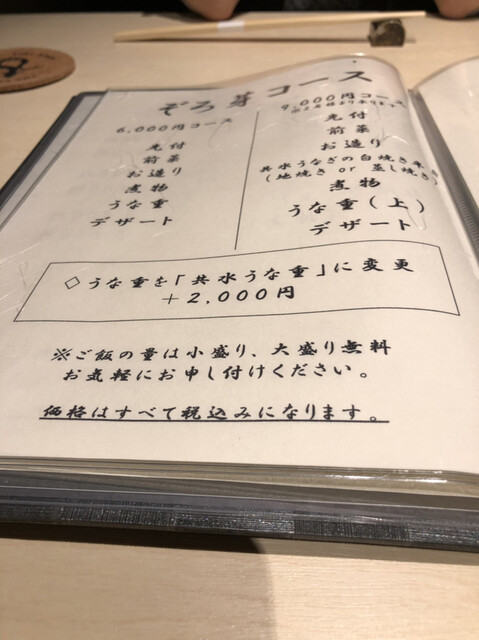 ぞろ芽コース
6,000円コース
先付
前菜
お造り
煮物
うな重
デザート
9,000円コース
※2名様より承ります
先付
前菜
お造り
共水うなぎの白焼き半身
(地焼き or 蒸し焼き)
煮物
うな重(上)
デザート
◇うな重を「共水うな重」に変更
+2,000円
※ご飯の量は小盛り、大盛り無料
お気軽にお申し付けください。
価格はすべて税込みになります。